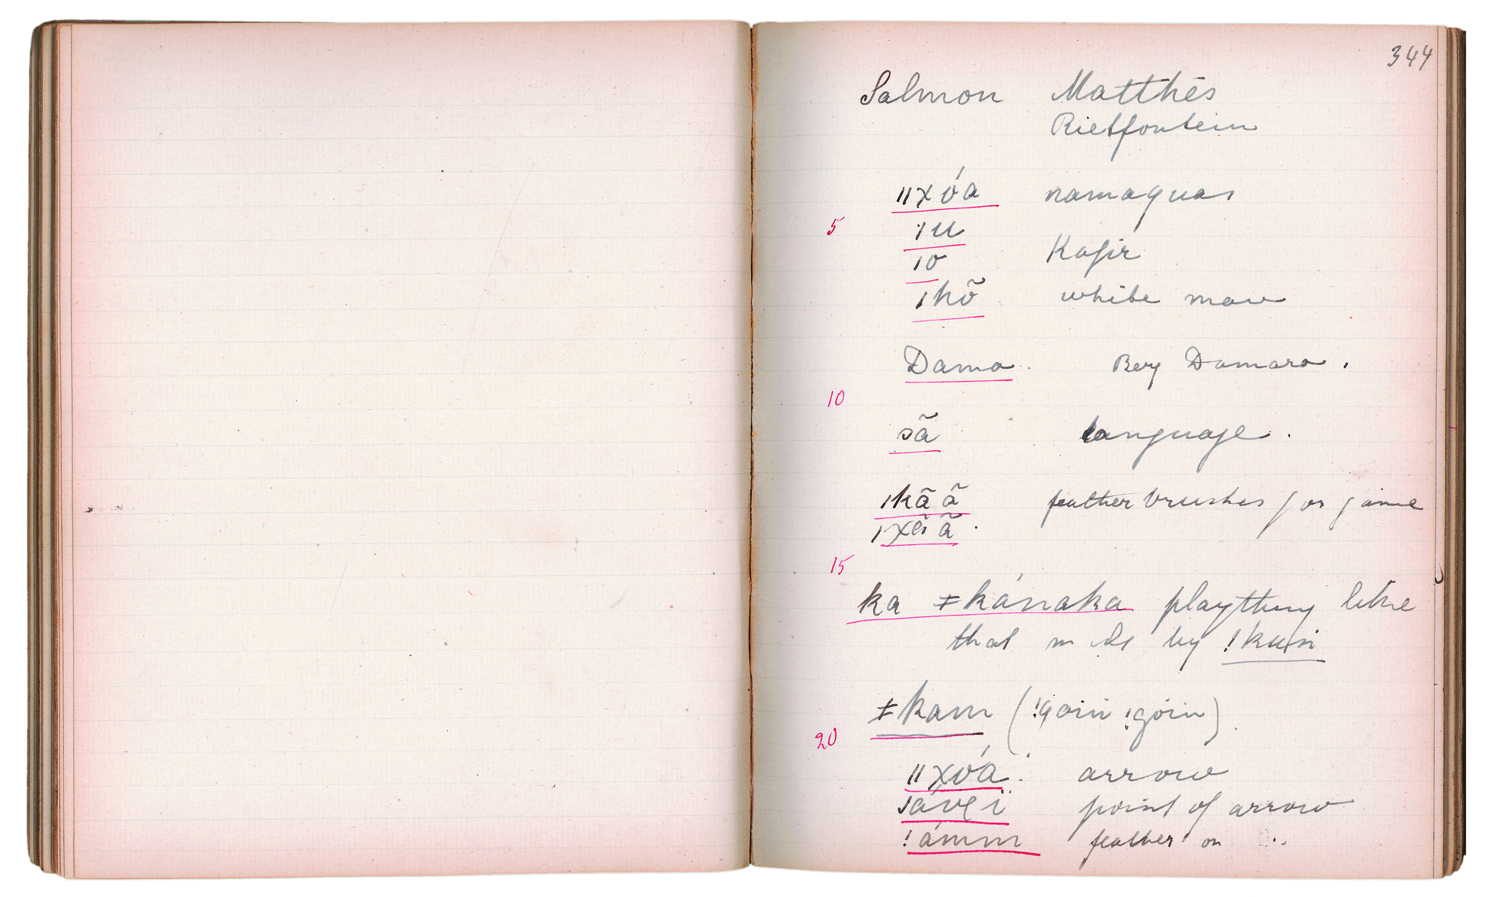 344
Salmon Matthés
Rietfontein
ǁχóa namaquas
5
ǀu
ǀo Kafir
ǀkõ white man
Dama Berg Damara.
10
sã language.
ǀkã ã feather brushes for game
ǀχẽi ã.
15
ka ǂkánaka plaything like
that made by !kusi
ǂkam (!goin !góin).
20
ǁχóa. arrow
point of arrow
!ámm feather on